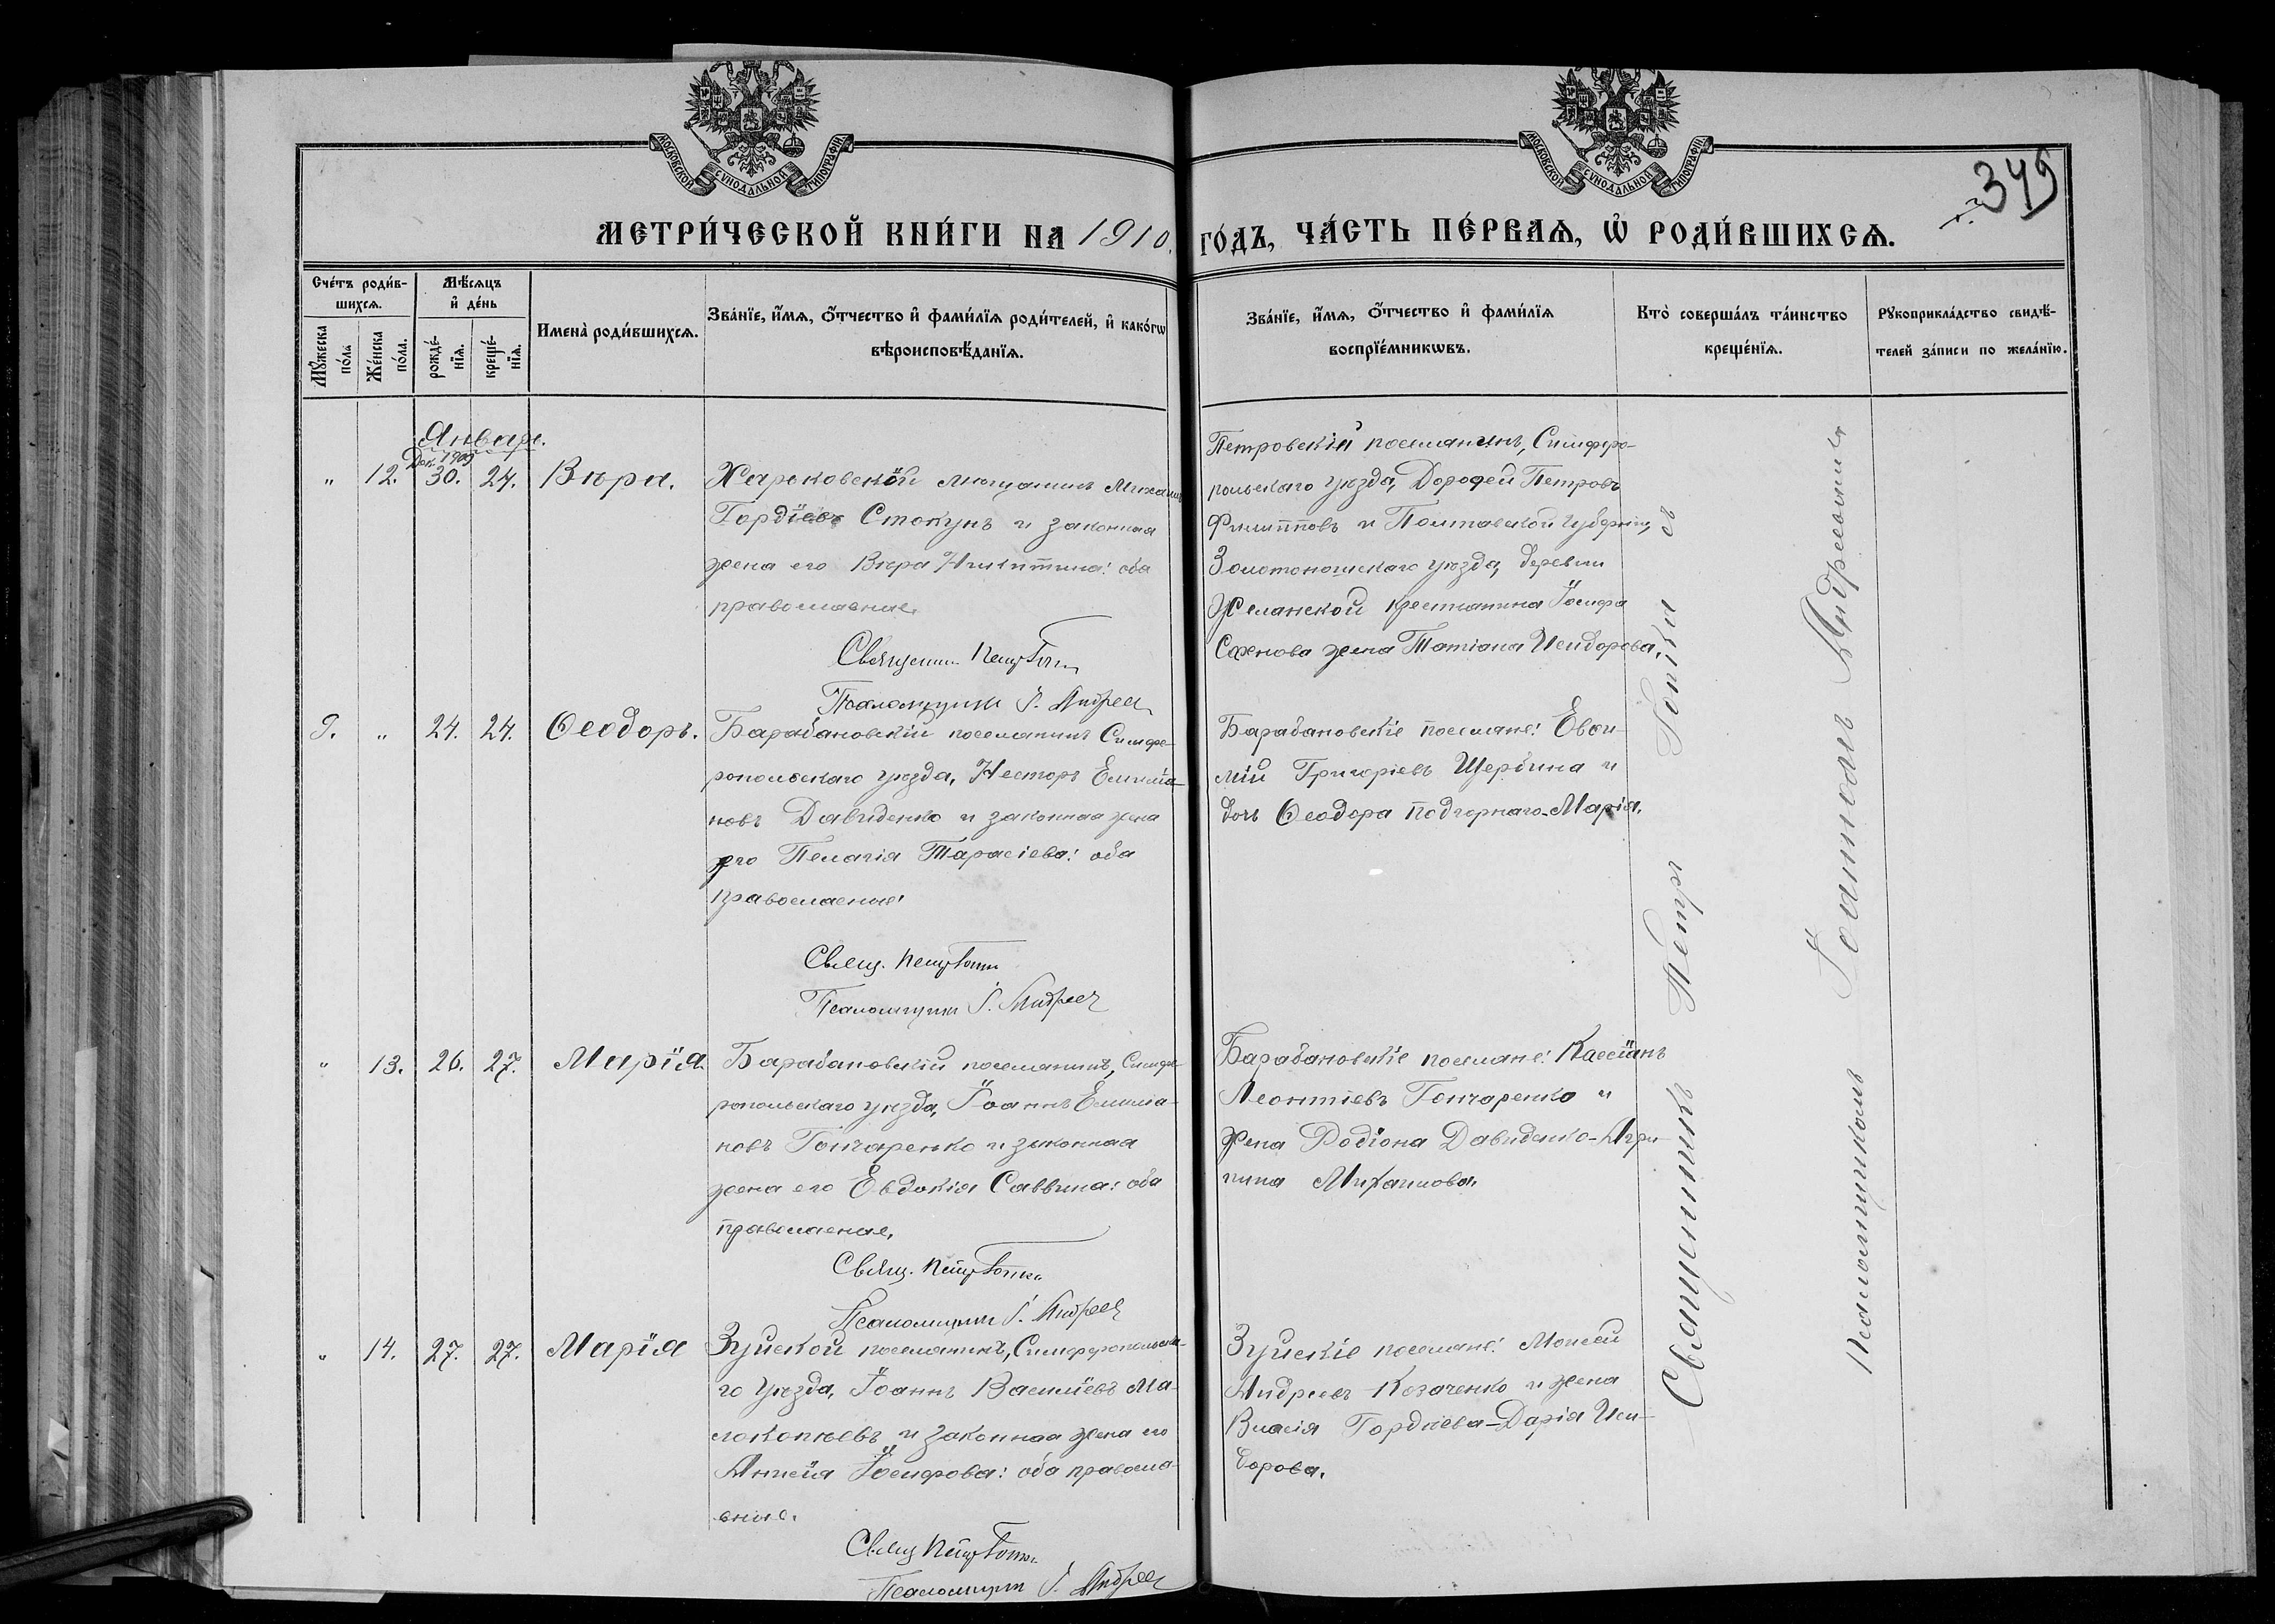 МОСКОВСКОЙ СѴНОДАЛЬНОЙ ТИПОГРАФІИ
МОСКОВСКОЙ СѴНОДАЛЬНОЙ ТИПОГРАФІИ
349
МЕТРИ́ЧЕСКОЙ КНИ́ГИ НА 1910
ГО́ДЪ, ЧА́СТЬ ПЕ́РВАѦ, Ѡ҆ РОДИ́ВШИХСѦ.
Сче́тъ роди́в-
шихсѧ.
Мѣ́сѧцъ
и҆ де́нь
Мꙋ́жеска
по́ла
Же́нска
по́ла.
рожде́-
нїѧ.
креще́-
нїѧ.
Имена̀ роди́вшихсѧ.
Зва́нїе, и҆́мѧ, ѻ҆́тчество и҆ фами́лїѧ роди́телей, и҆ како́гѡ
вѣроисповѣ́данїѧ.
Зва́нїе, и҆́мѧ, ѻ҆́тчество и҆ фами́лїѧ
воспрїе́мникѡвъ.
Кто̀ соверша́лъ та́инство
креще́нїѧ.
Рꙋкоприкла́дство свидѣ́-
телей за́писи по жела́нїю.
Январь.
Дек. 1909
" 12. 30. 24. Вѣра.
Харьковскій мѣщанинъ Михаилъ
Гордіевъ Стокунъ и законная
жена его Вѣра Никитина: оба
православные.
Священн. Петръ
Псаломщикъ І. Андреев
Петровскій поселянинъ, Симферо-
польскаго уѣзда, Дорофей Петровъ
Филипповъ и Полтавской губерніи,
Золотоношскаго уѣзда, деревни
крестьянина Іосифа
жена Татіана Исидорова.
9. " 24. 24. Ѳеодоръ.
Барабановскій поселянинъ Симфе-
ропольскаго уѣзда, Несторъ Емилiа-
новъ Давиденко и законная жена
его Пелагія Тарасіева: оба
православные.
Свящ. Петръ
Псаломщикъ І. Андреев
Барабановскіе поселяне: Евѳи-
мій Григоріевъ Щербина и
дочь Ѳеодора Подгорнаго-Марія.
" 13. 26. 27. Марія.
Барабановскій поселянинъ, Симфе-
ропольскаго уѣзда, Іоаннъ Емилiа-
новъ Гончаренко и законная
жена его Евдокія Саввина: оба
православные.
Свящ. Петръ
Псаломщикъ І. Андреев
Барабановскіе поселяне: Кассіанъ
Леонтіевъ Гончаренко и
жена Родіона Давиденко-Агри-
пина Михаилова.
" 14. 27. 27. Марія
Зуйской поселянинъ, Симферопольска-
го уѣзда, Іоаннъ Василіевъ Ма-
локопѣевъ и законная жена его
Анисія Іосифова: оба правосла-
вные.
Свящ. Петръ
Псаломщикъ І. Андреев
Зуйскіе поселяне: Моисей
Андреевъ Козаченко и жена
Власія Гордіева-Дарія Иси-
дорова.
Священникъ Петръ съ
псаломщикомъ Іоанномъ Андреевымъ